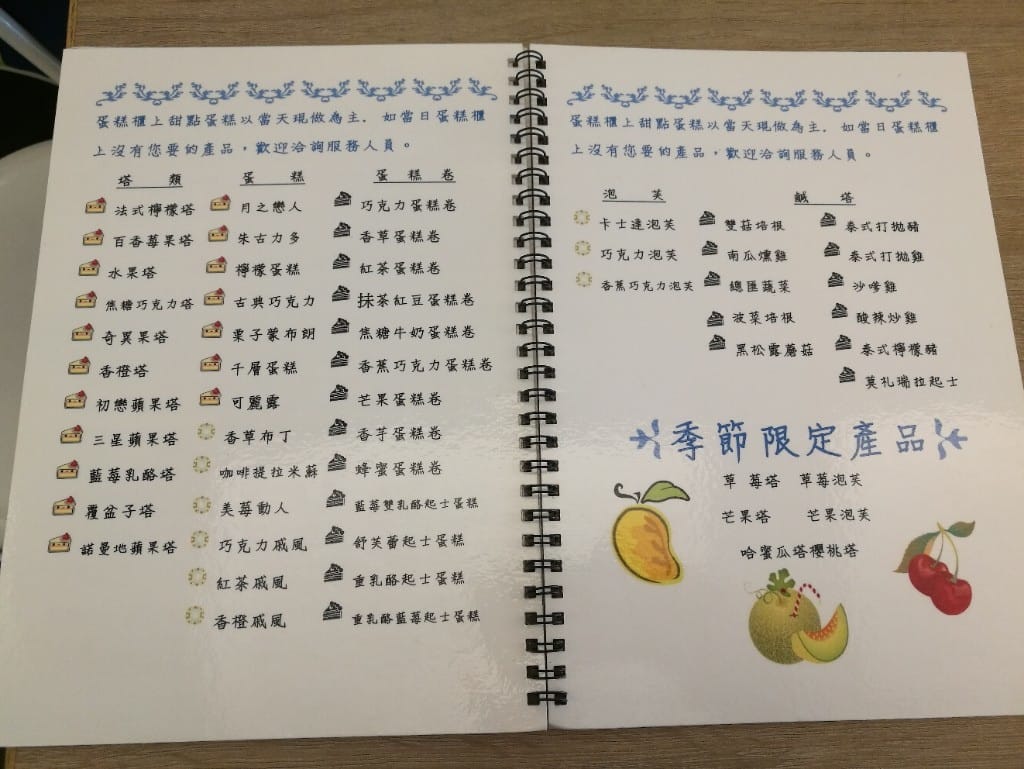 蛋糕櫃上甜點蛋糕以當天現做為主. 如當日蛋糕櫃
上沒有您要的產品，歡迎洽詢服務人員。
塔 類
法式檸檬塔
百香莓果塔
水果塔
焦糖巧克力塔
奇異果塔
香橙塔
初戀蘋果塔
三星蘋果塔
藍莓乳酪塔
覆盆子塔
諾曼地蘋果塔
蛋 糕
月之戀人
朱古力多
檸檬蛋糕
古典巧克力
栗子蒙布朗
千層蛋糕
可麗露
香草布丁
咖啡提拉米蘇
美莓動人
巧克力戚風
紅茶戚風
香橙戚風
蛋 糕 卷
巧克力蛋糕卷
香草蛋糕卷
紅茶蛋糕卷
抹茶紅豆蛋糕卷
焦糖牛奶蛋糕卷
香蕉巧克力蛋糕卷
芒果蛋糕卷
香芋蛋糕卷
蜂蜜蛋糕卷
藍莓雙乳酪起士蛋糕
舒芙蕾起士蛋糕
重乳酪起士蛋糕
重乳酪藍莓起士蛋糕
蛋糕櫃上甜點蛋糕以當天現做為主. 如當日蛋糕櫃
上沒有您要的產品，歡迎洽詢服務人員。
泡 芙
卡士達泡芙
巧克力泡芙
香蕉巧克力泡芙
鹹 塔
雙菇培根
南瓜燻雞
總匯蔬菜
波菜培根
黑松露蘑菇
泰式打拋豬
泰式打拋雞
沙嗲雞
酸辣炒雞
泰式檸檬豬
莫札瑞拉起士
季節限定產品
草莓塔 草莓泡芙
芒果塔 芒果泡芙
哈蜜瓜塔櫻桃塔